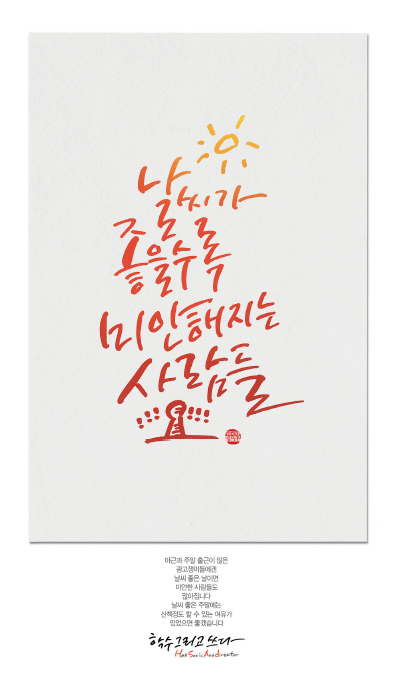 날씨가
좋을수록
미안해지는
사람들
야근과 주말 출근이 많은
광고쟁이들에겐
날씨 좋은 날이면
미안한 사람들도
많아집니다
날씨 좋은 주말에는
산책정도 할 수 있는 여유가
있었으면 좋겠습니다
학수그리고쓰다
HakSoo is Ano director